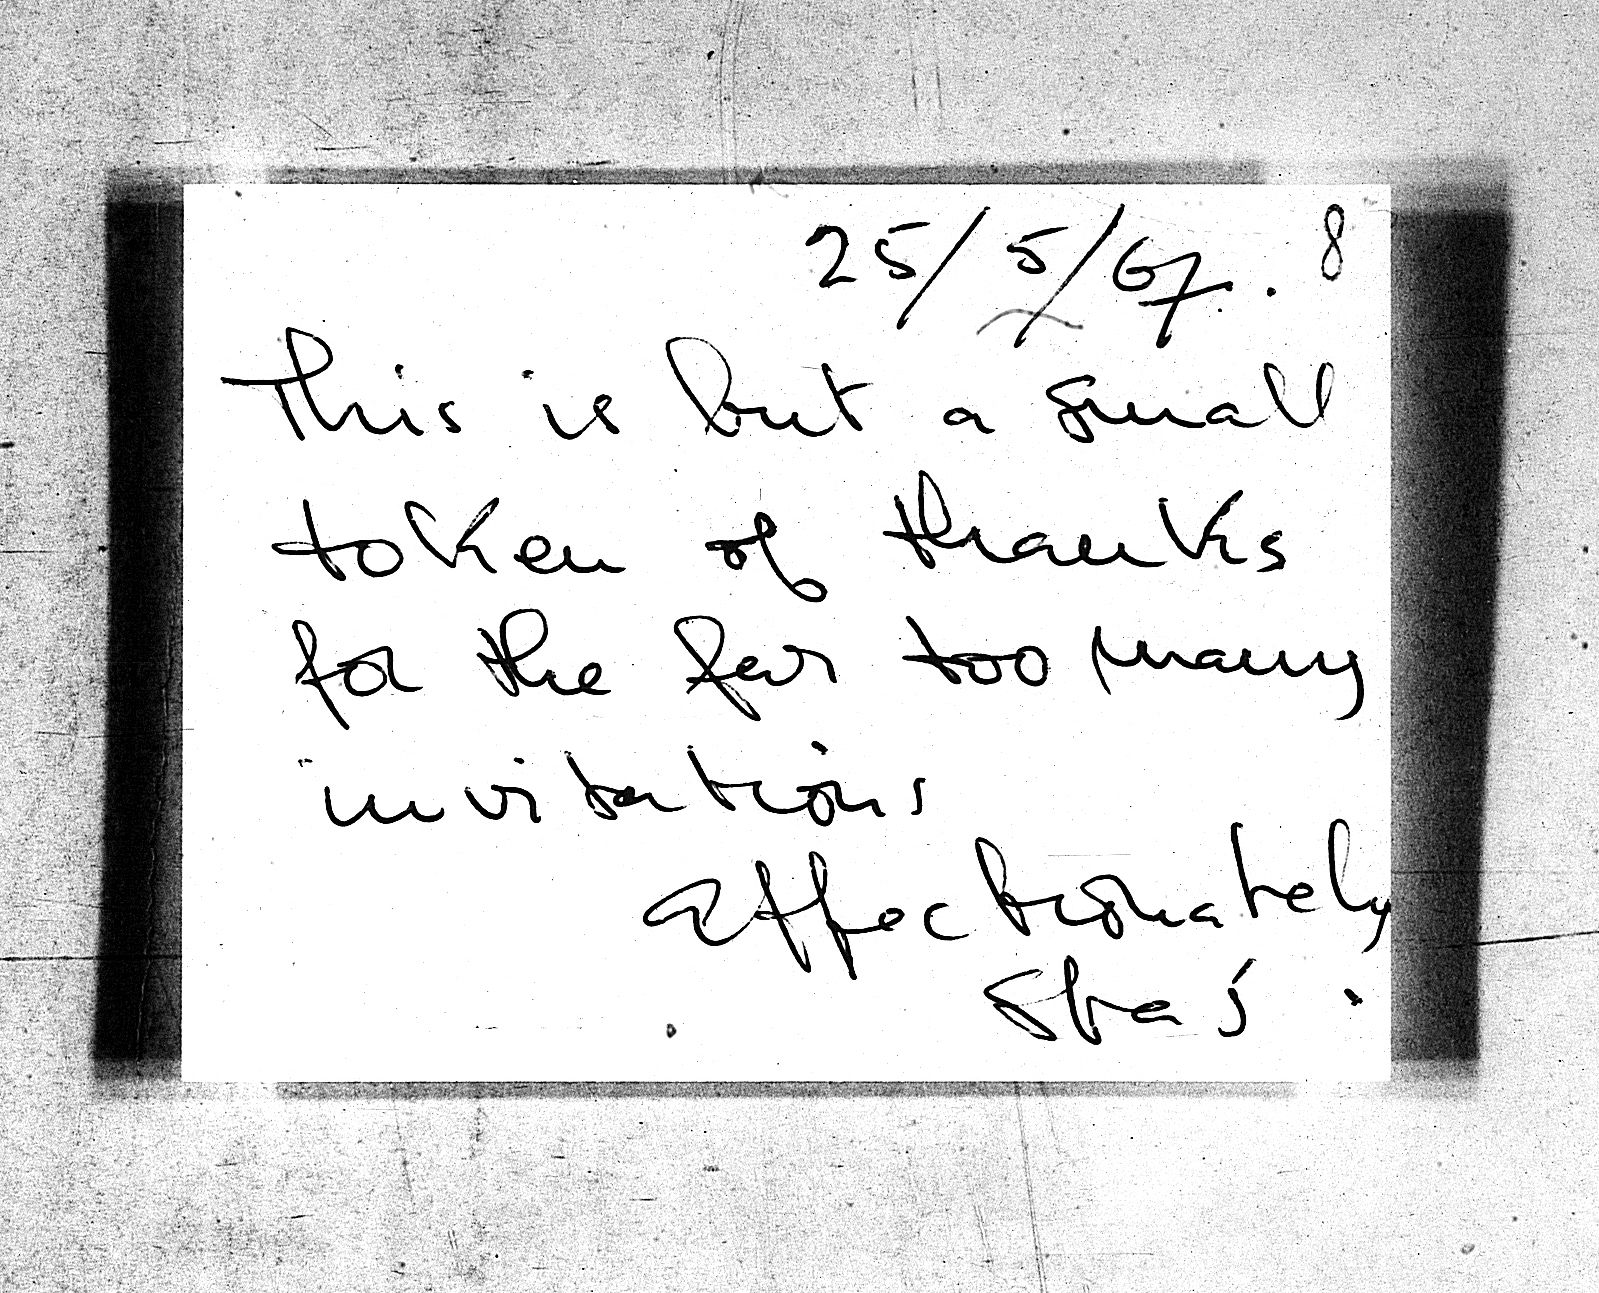 25/5/67. 8
This is but a small
token of thanks
for the far too many
invitations
affectionately
Staś.